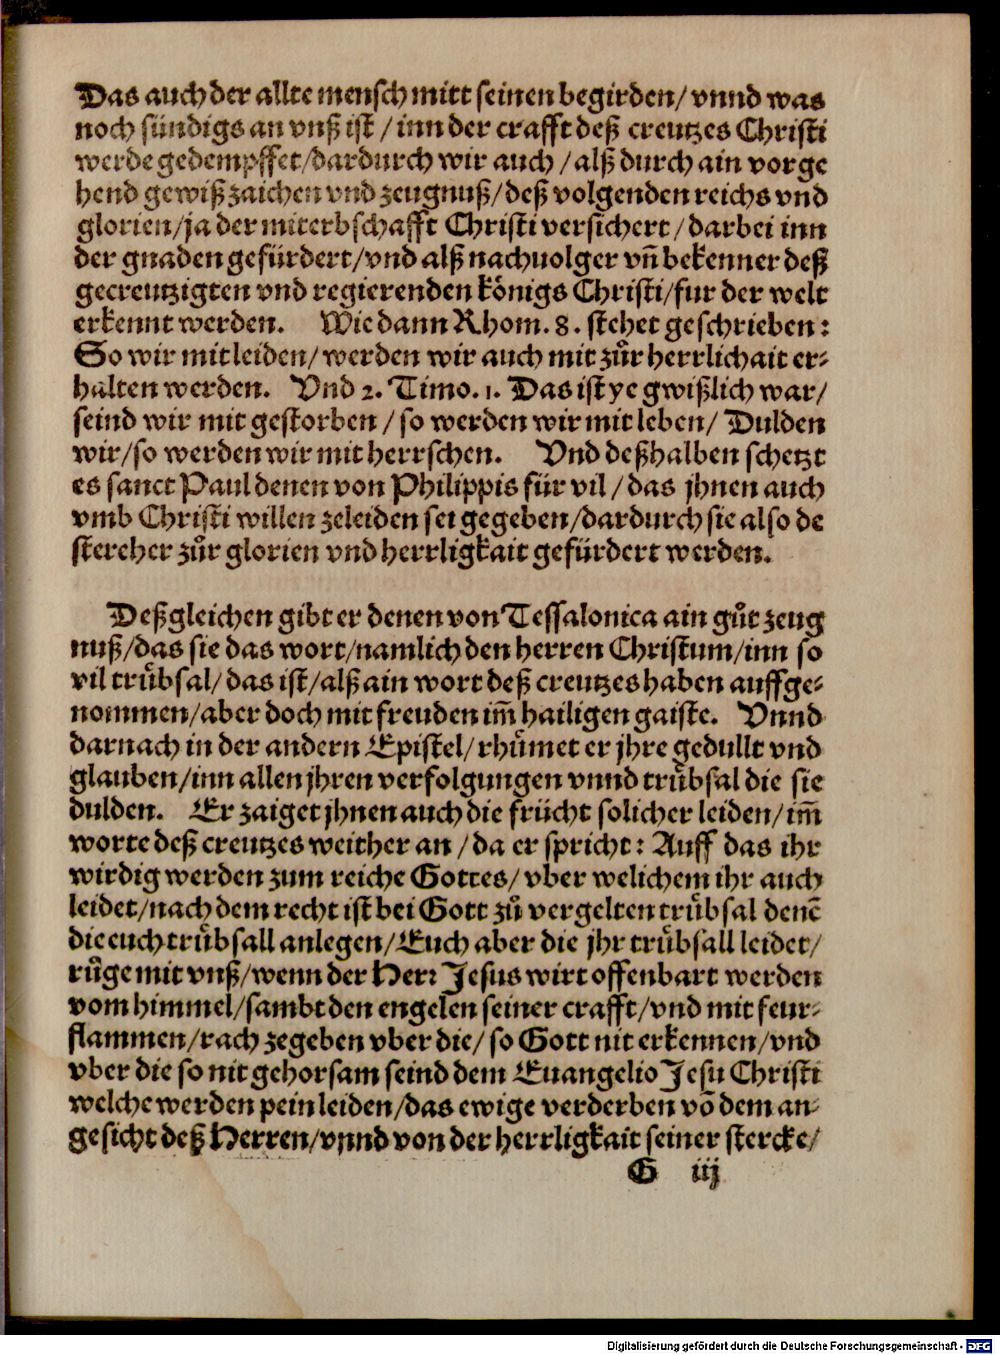 Das auch der allte mensch mitt seinen begirden/ vnnd was
noch sündigs an vnß ist / inn der crafft deß creutzes Christi
werde gedempffet/dardurch wir auch / alß durch ain vorge
hend gewiß zaichen vnd zeugnuß/deß volgenden reichs vnd
glorien/ja der miterbschafft Christi versichert / darbei inn
der gnaden gefürdert/vnd alß nachuolger vñ bekenner deß
gecreutzigten vnd regierenden königs Christi/fur der welt
erkennt werden. Wie dann Rhom. 8. stehet geschrieben:
So wir mit leiden/ werden wir auch mit zůr herrlichait er-
halten werden. Vnd 2. Timo. 1. Das ist ye gwißlich war/
seind wir mit gestorben / so werden wir mit leben/ Dulden
wir/so werden wir mit herrschen. Vnd deßhalben schetzt
es sanct Paul denen von Philippis für vil / das jhnen auch
vmb Christi willen zeleiden sei gegeben/dardurch sie also de
stereher zůr glorien vnd herrligkait gefürdert werden.
Deßgleichen gibt er denen von Tessalonica ain gůt zeug
nuß/das sie das wort/namlich den herren Christum/inn so
vil trůbsal/das ist/alß ain wort deß creutzes haben auffge-
nommen/aber doch mit freuden im̃ hailigen gaiste. Vnnd
darnach in der andern Epistel/rhůmet er jhre gedullt vnd
glauben/inn allen jhren verfolgungen vnnd trůbsal die sie
dulden. Er zaiget jhnen auch die frücht solicher leiden/im̃
worte deß creutzes weither an /da er spricht: Auff das ihr
wirdig werden zum reiche Gottes/ vber welichem ihr auch
leidet/nach dem recht ist bei Gott zů vergelten trůbsal denẽ
die euch trůbsall anlegen/Euch aber die jhr trůbsall leidet/
růge mit vnß/wenn der Herr Jesus wirt offenbart werden
vom himmel/sambt den engelen seiner crafft/vnd mit feur-
flammen/rach zegeben vber die/ so Gott nit erkennen/vnd
vber die so nit gehorsam seind dem Euangelio Jesu Christi
welche werden pein leiden/das ewige verderben võ dem an-
gesicht deß Herren/vnnd von der herrligkait seiner stercke/
G iij
Digitalisierung gefördert durch die Deutsche Forschungsgemeinschaft - DFG